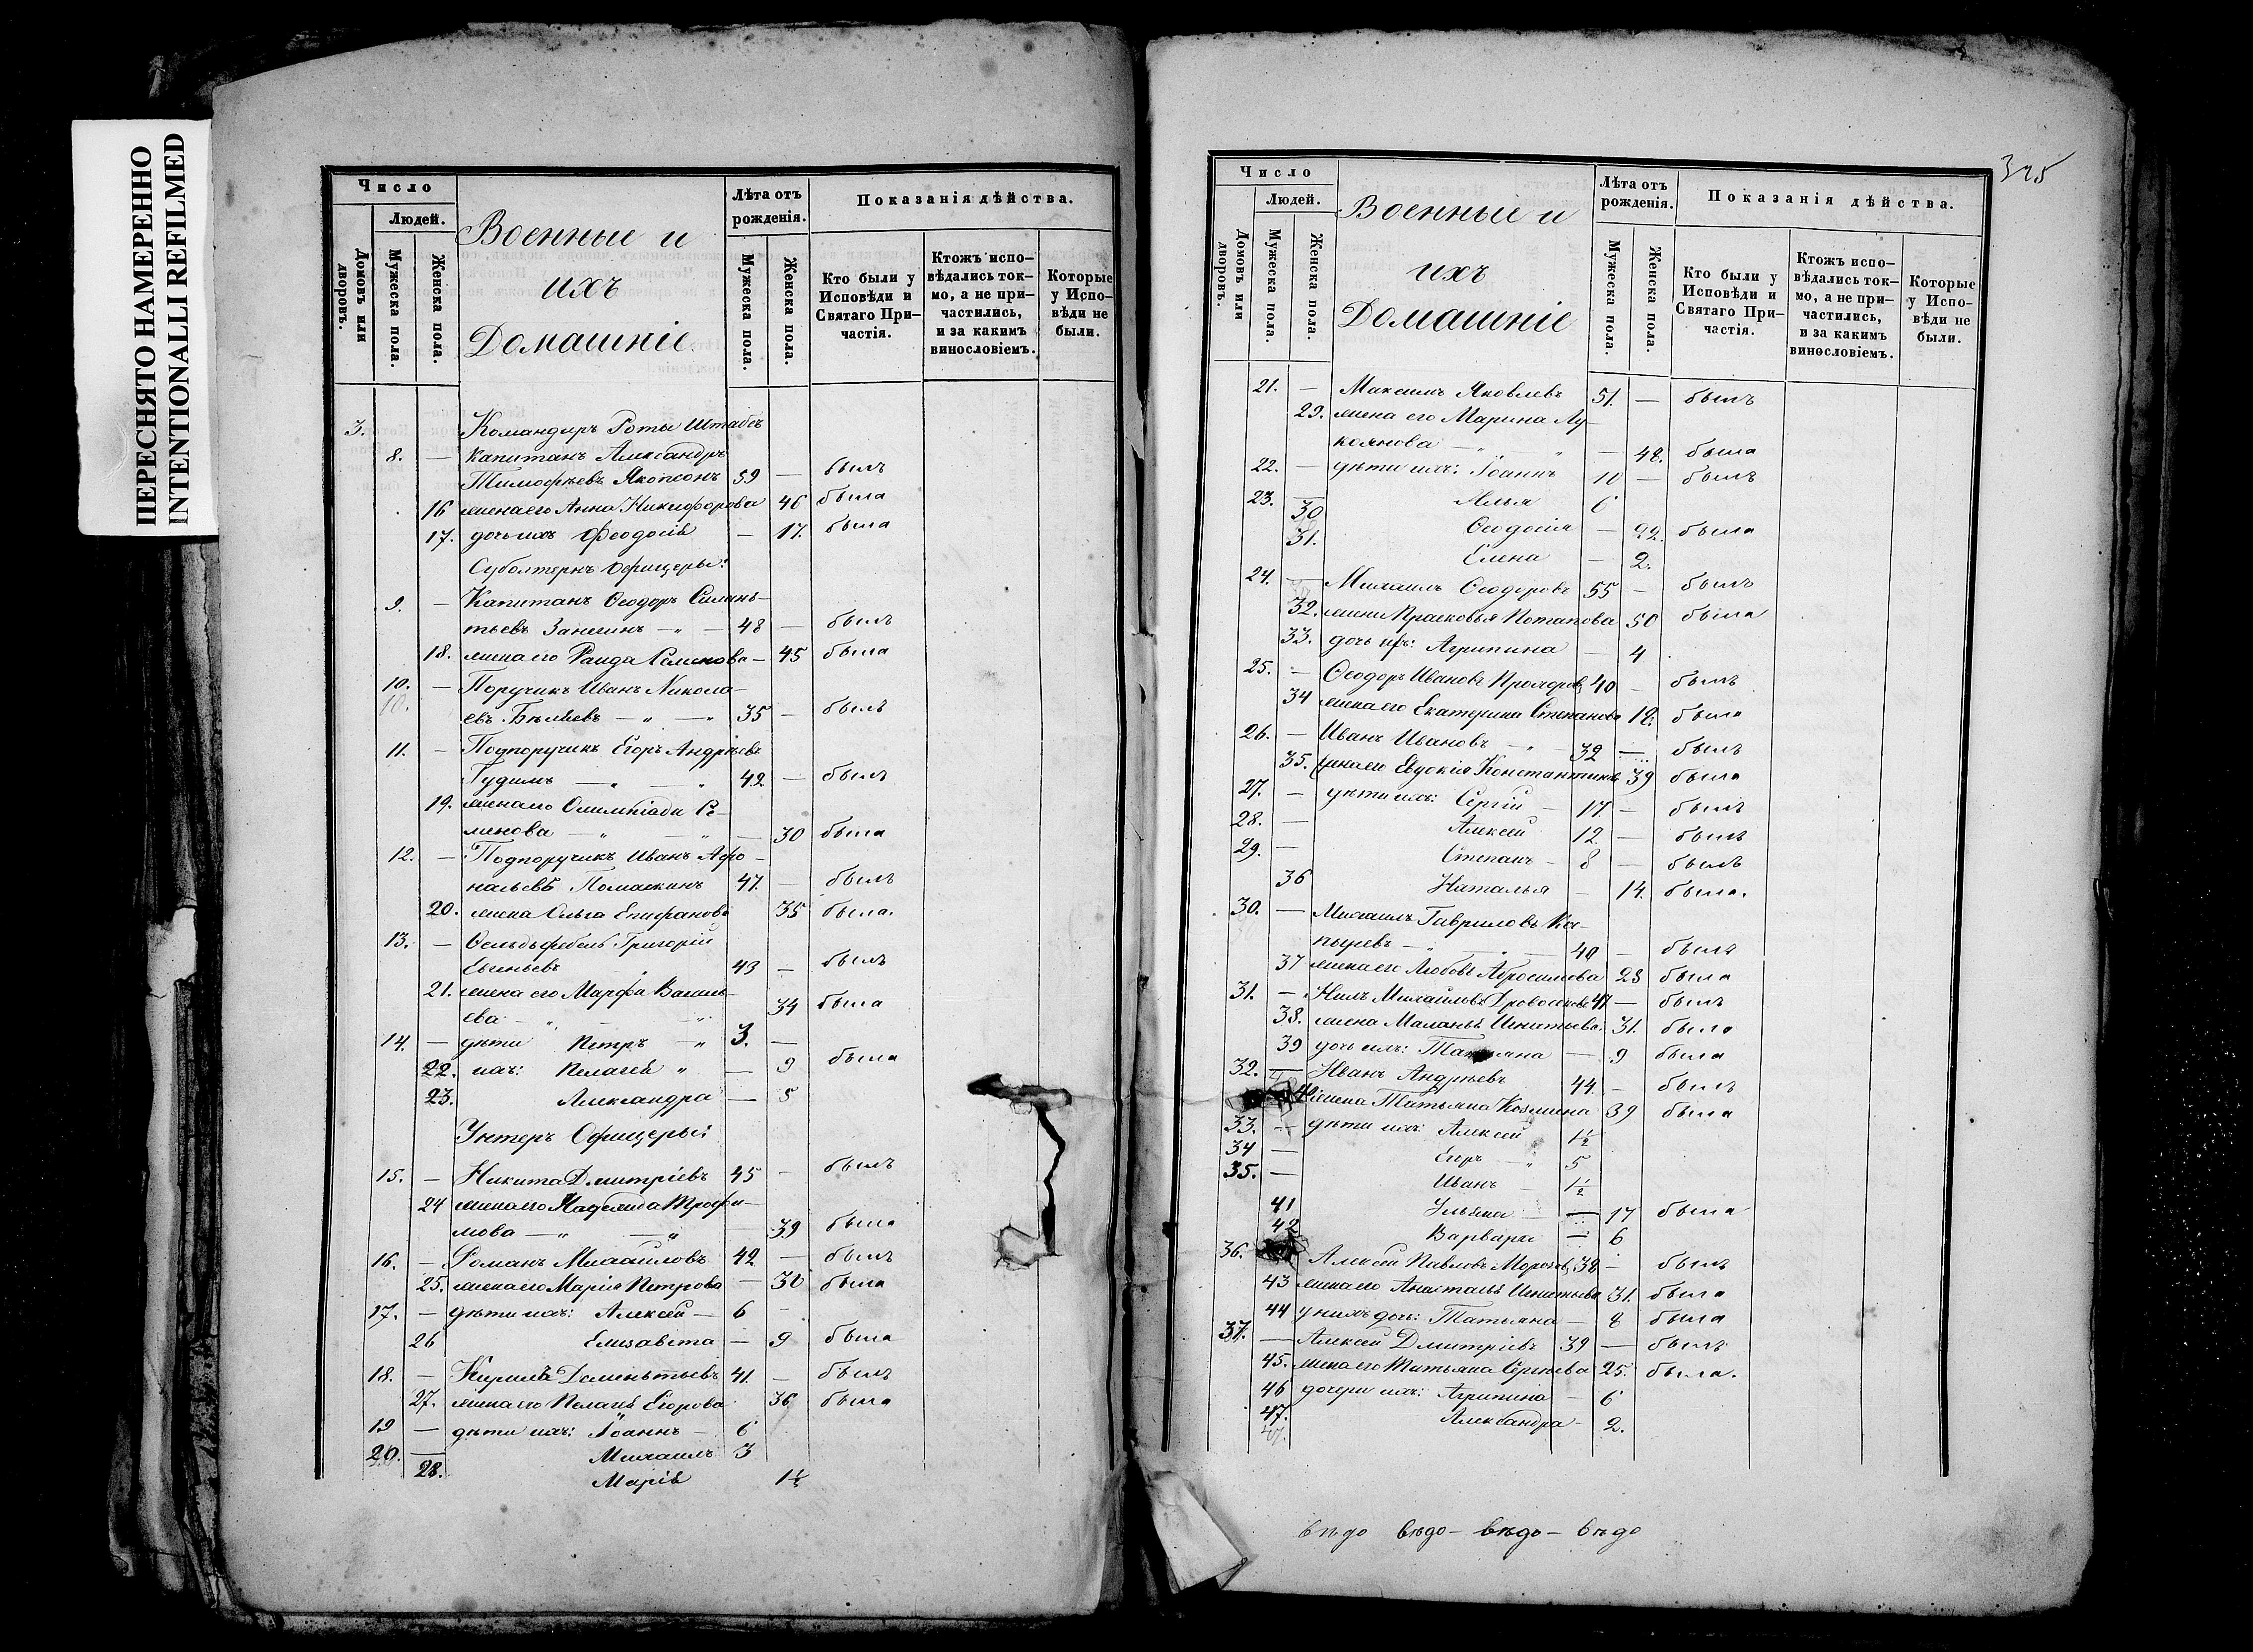 ПЕРЕСНЯТО НАМЕРЕННО
INTENTIONALLI REFILMED
Число
Людей.
Домовъ или дворовъ.
Мужеска пола.
Женска пола.
Военные и
ихъ
Домашніе.
Лѣта отъ рожденія.
Мужеска пола.
Женска пола.
Показанія дѣйства.
Кто были у Исповѣди и Святаго При-частія.
Ктожъ испо-вѣдались ток-мо, а не при-частились, и за какимъ винословіемъ.
Которые у Испо-вѣди не были.
3. Командиръ Роты Штабсъ
8. — Капитанъ Александръ
Тимофѣевъ 59 — былъ
16 жена его Анна Никифорова 46 была
17. дочь ихъ Феодосія — 17. была
Субалтернъ Офицеры:
9. — Капитанъ Ѳеодоръ Силань-
тьевъ — „ — 48 — былъ
18. жена его Раида Семенова — 45 была
10. — Поручикъ Иванъ Никола-
евъ Бѣляевъ — „ — „ 35 — былъ
11. — Подпоручикъ Егоръ Андрѣевъ
Гудимъ — „ — „ 42 — былъ
19. жена его Олимпіада Се-
менова — „ — „ — 30 была
12. — Подпоручикъ Иванъ Афо-
насьевъ 47. — былъ
20. жена Ольга Епифанова 35 была.
13. — Ѳельдьфебель Григорій
Евсеньевъ 43 — былъ
21. жена его Марфа Василь-
ева — „ — „ 34 была
14. — дѣти Петръ — „ 3. —
22. ихъ: Пелагея „ — 9 была
23. Александра — 5
Унтеръ Офицеры:
15. — Никита Дмитріевъ 45 — былъ
24 жена его Надежда Трофи-
мова — „ — „ 39 была
16. — Романъ Михайловъ 42 — былъ
25. жена его Марія Петрова — 30 была
17. — дѣти ихъ: Алексей — 6 —
26 Елисавета — 9 была
18. — Кирила Деменьтьевъ 41. — былъ
27. жена его Пелагея Егорова 36 была
19 — дѣти ихъ: Іоаннъ — 6
20. — Михаилъ 3
28. Марія 1½
325
Число
Людей.
Домовъ или дворовъ.
Мужеска пола.
Женска пола.
Военные и
ихъ
Домашніе
Лѣта отъ рожденія.
Мужеска пола.
Женска пола.
Показанія дѣйства.
Кто были у Исповѣди и Святаго При-частія.
Ктожъ испо-вѣдались ток-мо, а не при-частились, и за какимъ винословіемъ.
Которые у Испо-вѣди не были.
21. — Максимъ Яковлевъ 51. — былъ
29. жена его Марина Лу-
коянова — „ — „ — 48. была
22. — дѣти ихъ: Іоаннъ 10 — былъ
23. — Илья 6
30 Ѳеодосія — 22. была
31. Елена — 2.
24. — Михаилъ Ѳеодоровъ 55 — былъ
32. жена Прасковья Потапова 50 была
33. дочь их: Агрипина — 4
25. — Ѳеодоръ Ивановъ 40 — былъ
34 жена его Екатерина Степанова 18. была
26. — Иванъ Ивановъ — „ — 32 — былъ
35. жена его Евдокія Константинова 39 была
27. — дѣти ихъ: Сергій — 17. — былъ
28. — Алексей 12. — былъ
29. — Степанъ — 8 — былъ
36 Наталья — 14. была.
30. — Михаилъ Гавриловъ Ка-
пыревъ — „ — 40 — былъ
37 жена его Любовь Абросимова 23 была
31. — Нилъ Михайловъ Дровосековъ 47 — былъ
38. жена Маланья Игнатьева. 31. была
39 дочь ихъ: Татьяна — 9 была
32. — Иванъ Андрѣевъ 44. — былъ
40 жена Татьяна Козмина 39 была
33. — дѣти ихъ: Алексей 1½
34 — Егоръ — „ 5
35. — Иванъ — 1½
41 Ульяна — — 17 была
42 Варвара — 6
36. Алексей Павловъ Морозовъ 38 — былъ
43 жена его Анастасья Игнатьева 31. была
44 у нихъ дочь: Татьяна — 8 была
37. — Алексей Дмитріевъ 39 — былъ
45. жена его Татьяна Сергеева 25. была.
46 дочери ихъ: Агрипина — 6
47. Александра — 2.
вѣдо вѣдо — вѣдо — вѣдо